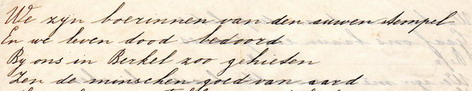 We zyn boerinnen van den auwen stempel
En we leven dood bedoord
By ons in Berkel zoo gehieten
Zen de minschen goed van aard